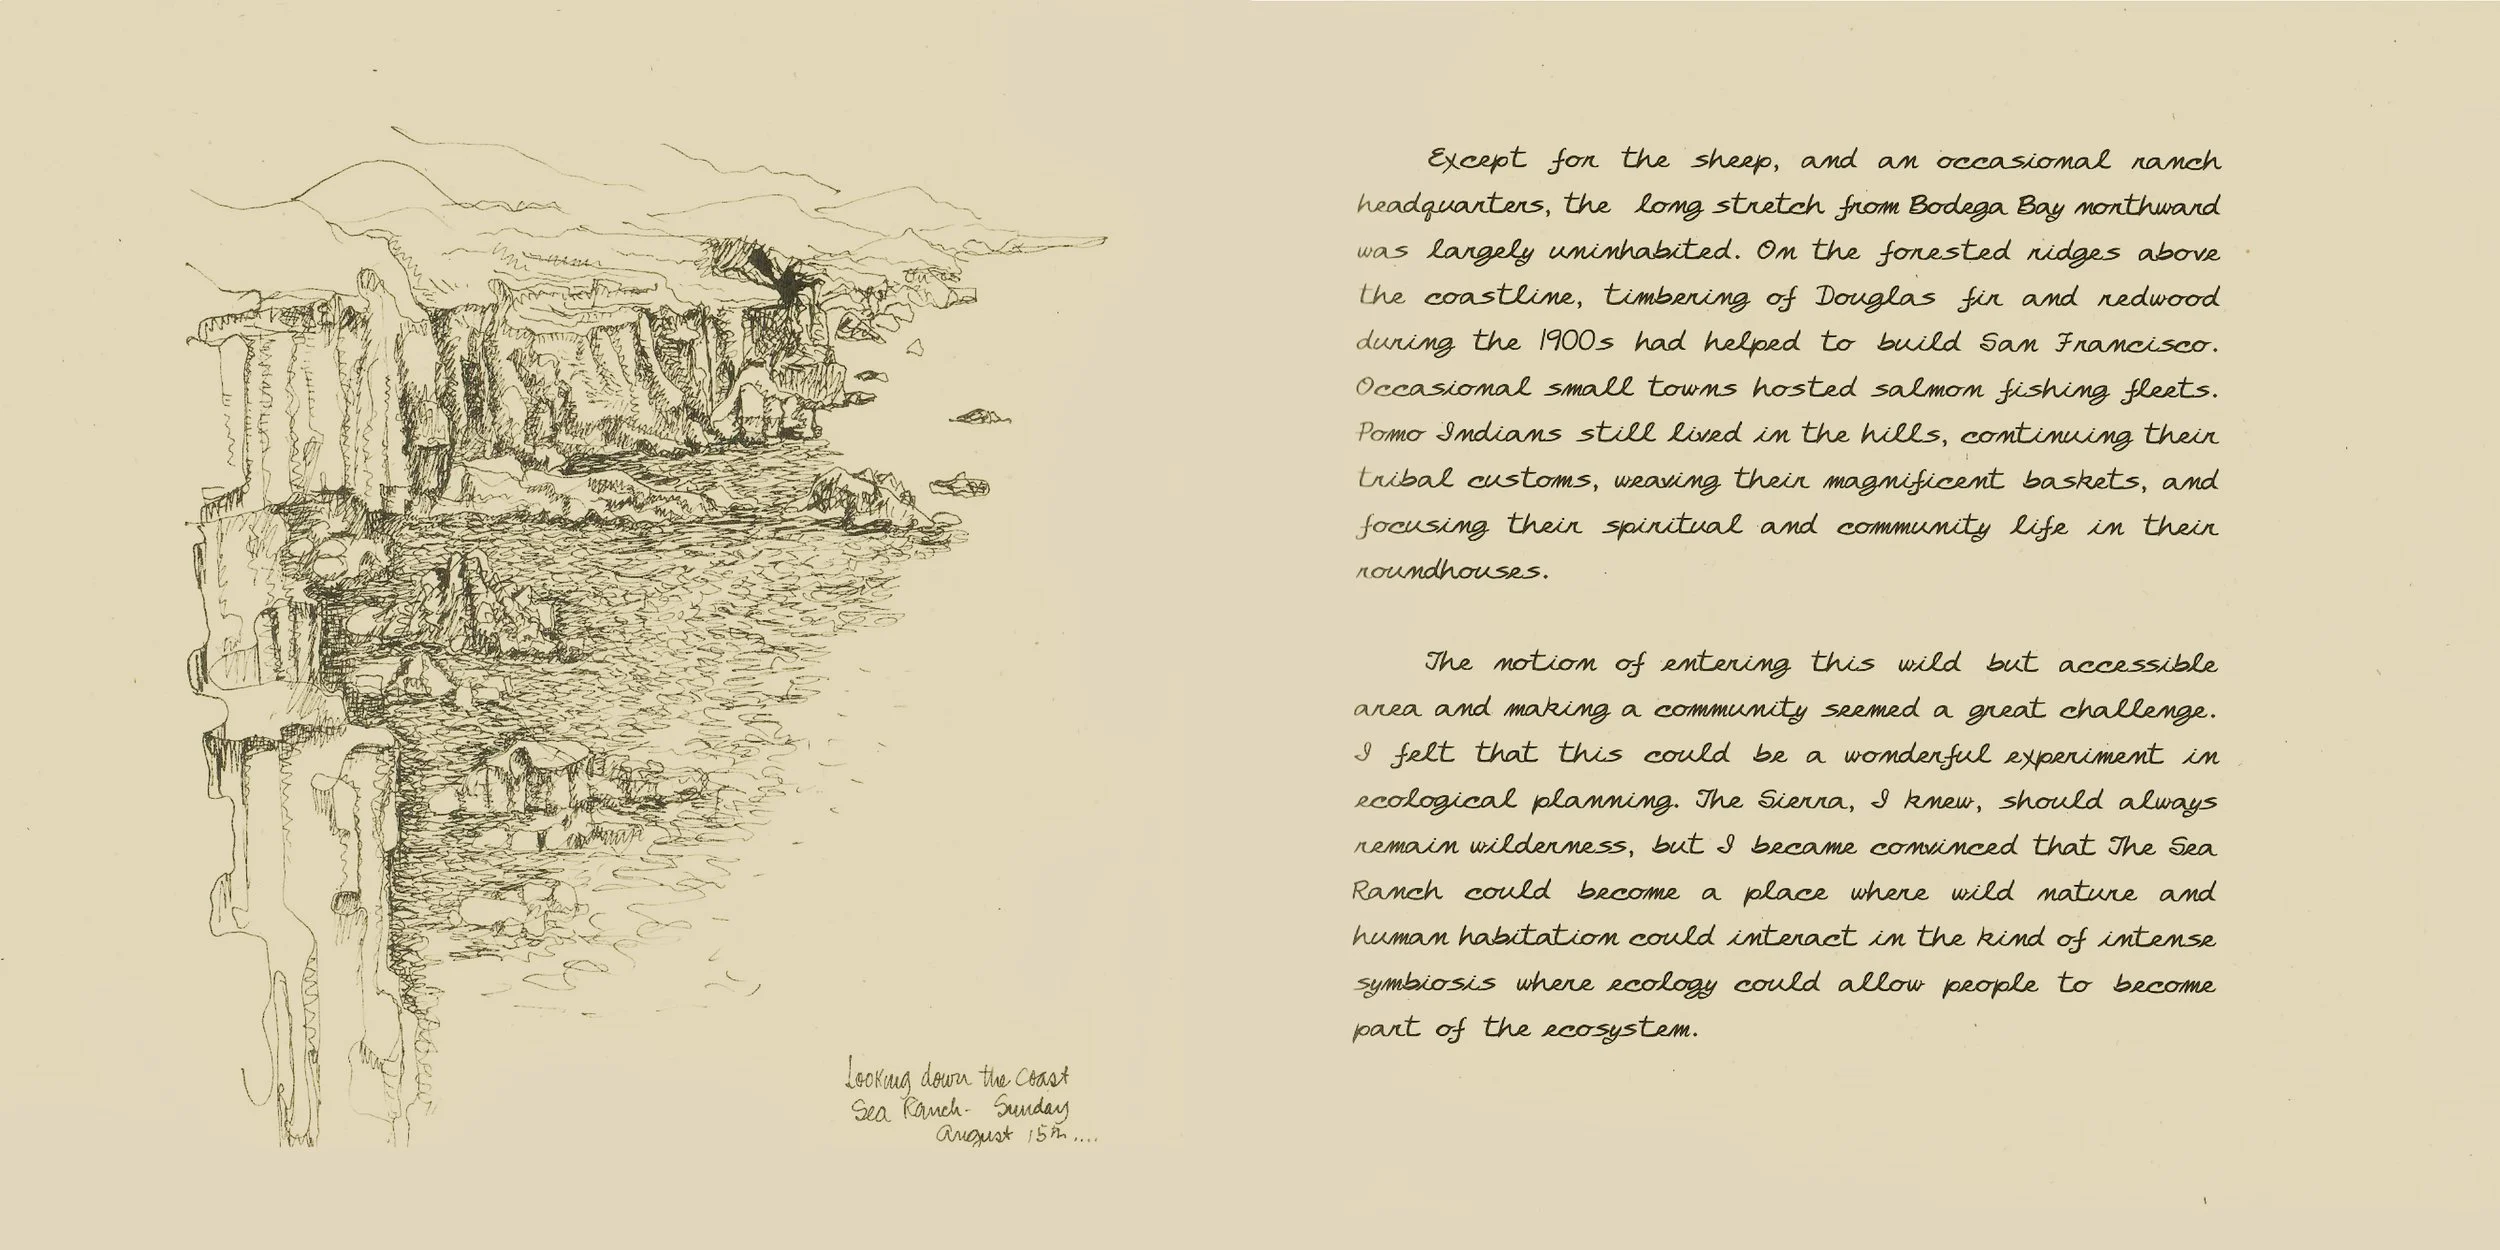 Looking down the Coast
Sea Ranch- Sunday
August 15th....
Except for the sheep, and an occasional ranch
headquarters, the long stretch from Bodega Bay northward
was largely uninhabited. On the forested ridges above
the coastline, timbering of Douglas fir and redwood
during the 1900s had helped to build San Francisco.
Occasional small towns hosted salmon fishing fleets.
Pomo Indians still lived in the hills, continuing their
tribal customs, weaving their magnificent baskets, and
focusing their spiritual and community life in their
roundhouses.
The notion of entering this wild but accessible
area and making a community seemed a great challenge.
I felt that this could be a wonderful experiment in
ecological planning. The Sierra, I knew, should always
remain wilderness, but I became convinced that The Sea
Ranch could become a place where wild nature and
human habitation could interact in the kind of intense
symbiosis where ecology could allow people to become
part of the ecosystem.